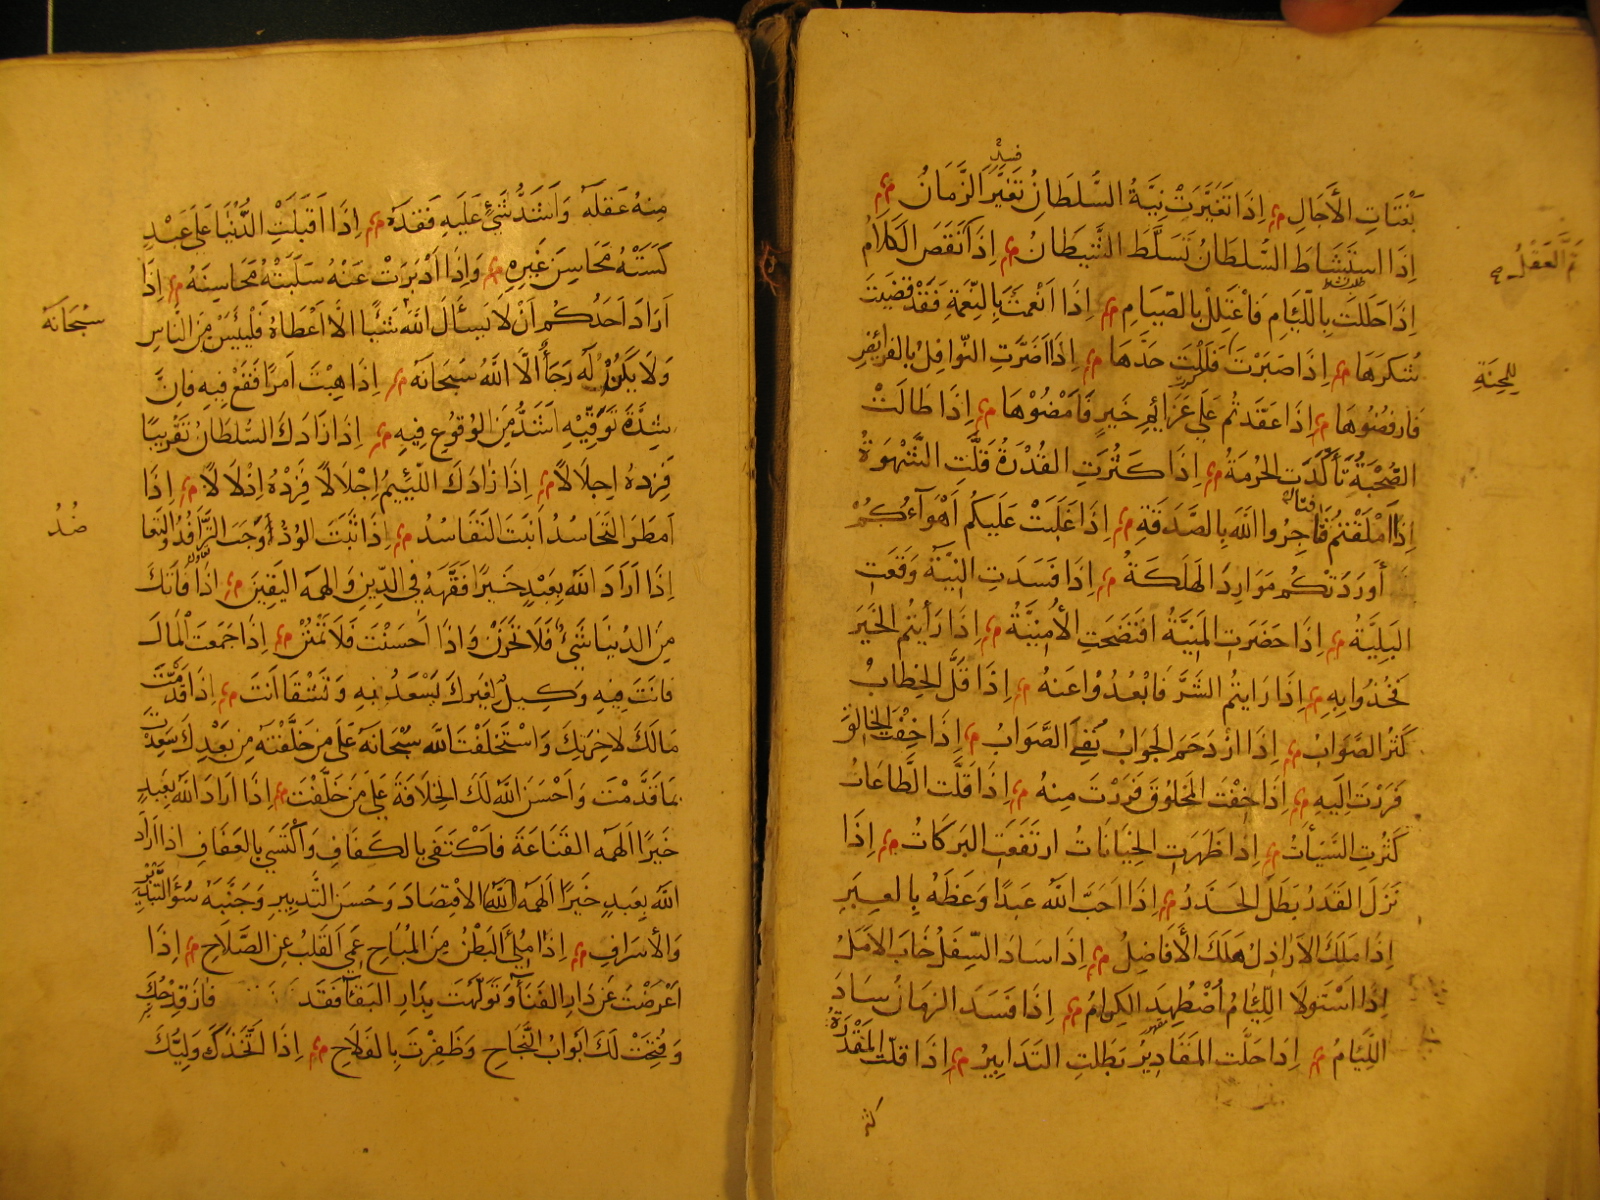 فسد
بَغَتَاتِ الأَجَالِ م إِذَا تَغَيَّرَتْ نِيَّةُ السُّلطَانُ تَغَيَّرَ الزَّمَانُ م
إِذَا اسْتَشَاطَ السُّلطَانُ تَسَلَّطَ الشَّيطَانُ م إِذَا نَقَصَ الكَلَامُ
تَمَّ العَقْلُ صح
إِذَا حَلَلتَ بِاللّيَامِ فَاعْتَلِلْ بِالصّيَامِ م إِذَا أَنْعَمْتَ بِالنِّعْمَةِ فَقَدْ قَضَيتَ
شُكرَهَا م إِذَا صَبَرْتَ فَلَلْتَ حَدَّهَا م إِذَا أَضَرَّتِ النّوَافِلُ بِالفَرَايِضِ
للمِحنَةِ
فَارفُضُوهَا م إِذَا عَقَدتُم عَلَى عَزَائِمِ خَيرٍ فَامْضُوْهَا م إِذَا طَالَتْ
الصُّحْبَةُ تَأَكَّدَتِ الحُرمَةُ م إِذَا كَثُرَتِ القُدْرَةُ قَلَّتِ الشَّهْوَةُ
إِذَا أَمْلَقْتُمْ فَتَاجِرُوا اللهَ بِالصَّدَقَةِ م إِذَا غَلَبَتْ عَلَيكُم أَهْوَآءُكُمْ
أَورَدَتْكُم مَوَارِدَ الهَلَكَةُ م إِذَا فَسَدَتِ النِّيَّةُ وَقَعَتِ
البَلِيَّةُ م إِذَا حَضَرَتِ المَنِيَّةُ افتَضَحَتِ الأُمنِيَّةُ م إِذَا رَأَيتُم الخَيرَ
فَخُذُوا بِهِ م إِذَا رَايتُم الشَرَّ فَابْعُدُوْا عَنهُ م إِذَا قَلَّ الخِطَابُ
كَثُرَ الصَّوَابُ م إِذَا ازدَحَمَ الجَوَابُ نُفِيَ الصَّوَابُ م إِذَا خِفْتَ الخَالِقَ
فَرَرْتَ إِلَيهِ م إِذَا خِفْتَ المَخلُوقَ فَرَرْتَ مِنهُ م إِذَا قَلَّتَ الطَّاعَاتُ
كَثُرتِ السَّيّأَتُ م إِذَا ظَهَرَتِ الخِيَانَاتُ ارتَفَعَتِ البَرَكَاتُ م إِذَا
نَزَلَ القَدَرُ بَطَلَ الحَذَرُ م إِذَا أَحَبَّ اللهُ عَبدًا وَعَظَهُ بِالعِبَرِ
إِذَا مَلَكَ الاَرَاذِلُ هَلَكَ الأَفَاضِلُ م إِذَا سَادَ السِّفَلُ خَابَ الاَمَلُ
إِذَا اسْتَولَا اللِّئَامُ اُضْطُهِدَ الكِرَامُ م إِذَا فَسَدَ الزمَانُ سَادَ
اللِّيَامُ م إِذَا حَلَّتِ المَقَادِيرُ بَطَلتِ التَدَابِيرُ م إِذَا قَلّتِ المَقْدَرَةُ
كثر
مِنهُ عَقلَهُ وَاشتَدُّ شَيْءٍ عَلَيهِ فَقدَهُ م إِذَا أَقبَلَتِ الدُّنْيَا عَلَى عَبْدٍ
كَسَتْهُ مَحَاسِنَ غَيرِهِ م وَإِذَا أَدْبَرَتْ عَنْهُ سَلَبَتْهُ مَحَاسِنَهُ م إِذَا
أَرَادَ أَحَدُكُم أَنْ لَا يَسأَلَ اللهَ شَيئًا إِلَّا أَعْطَاهُ فَليَيْئَسْ مِنَ النَّاسِ
سُبحَانَهُ
وَلَا يَكُنْ لَهُ رَجَآءٌ إِلَّا اللهُ سُبحَانَهُ م إِذَا هِبْتَ أَمرًا فَقَعْ فِيهِ فَإِنَّ
شِدَّةَ تَوَقّيْهِ أَشَدُّ مِنَ الوُقُوعِ فِيهِ م إِذَا زَادَكَ السُّلطَانُ تَقْرِيبًا
فَزِدهُ إِجلَالًا م إِذَا زَادَكَ اللَّئِيمُ إِجْلَالًا فَزِدْهُ إِذْلَالًا م إِذَا
أَمطَرَ التَحَاسُدُ أَنبَتَ التَفَاسُدُ م إِذَا ثَبَتَ الوُدُّ وَجَبَ التَّرَافُدُ وَالتعَا
ضُدُ
إِذَا أَرَادَ اللهُ بِعَبْدٍ خَيرًا فَقَّهَهُ فِي الدِّينِ وَالهَمَهُ اليَقِينَ م إِذَا فَاتَكَ
مِنَ الدُنيَا شَيْءٌ فَلَا تَحْزَنْ وَإِذَا أَحسَنْتَ فَلَا تَمْنُنْ م إِذَا جَمَعتَ المَالَ
فَانَتَ فِيهِ وَكِيلٌ لِغَيرِكَ يَسْعَدُ بِهِ وَتَشْقَا أَنتَ م إِذَا قَدَّمْتَ
مَالَكَ لِاخِرَتِكَ وَاسْتَخْلَفْتَ اللهَ سُبْحَانَهُ عَلَى مَن خَلَّفْتَهُ مِن بَعْدِكَ سَعِدْتَ
بِمَا قَدَّمتَ وَأَحْسَنَ اللهُ لَكَ الخِلَافَةَ عَلَى مَن خَلَّفْتَ م إِذَا أَرَادَ اللهُ بِعَبدٍ
خَيرًا أَلهَمَهُ القَنَاعَةَ فَاكْتَفَى بِالكَفَافِ وَاكْتَسَى بِالعَفَافِ إذا أَرَادَ
اللهُ بِعَبدٍ خَيرًا أَلهَمَهُ اللهُ الاِقتِصَادَ وَحُسنَ التَّدبِيرِ وَجَنَّبَهُ سُوءَ التَّدبِيرِ
وَالأَسرَافِ م إِذَا مُلِئَ البَطْنُ مِنَ المُبَاحِ عَمِيَ القَلبُ عَنِ الصَّلَاحِ م إِذَا
أَعْرَضْتَ عَن دَارِ الفَنَآءِ وَتَوَلَّهْتَ بِدَارِ البَقَآءِ فَقَد فَازَ قِدْحُكَ
وَفُتِحَتْ لَكَ أَبوَابُ النَّجَاحِ وَظَفِرْتَ بِالفَلَاحِ م إِذَا اتَّخَذَكَ وَلِيُّكَ